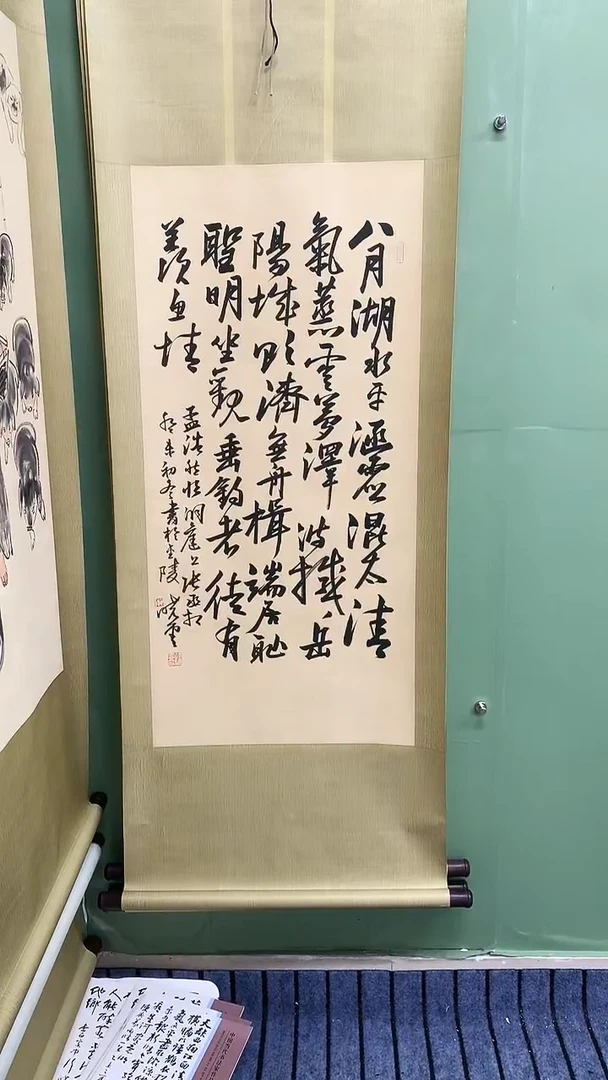 八月湖水平涵虛混太清
氣蒸雲夢澤波撼岳
陽城欲濟無舟楫端居恥
聖明坐觀垂釣者徒有
羨魚情
孟浩然 洞庭上張丞相
未初冬書於金陵